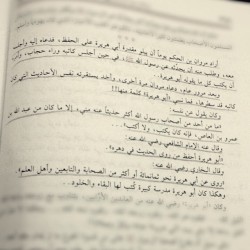 أراد مروان بن الحكم يوماً أن يبلو مقدرة أبي هريرة على الحفظ، فدعاه إليه وأجلسه
معه، وطلب منه أن يحدثه عن رسول الله ﷺ في حين أجلس كاتبه وراء حجاب، وأمره
أن يكتب كل ما يقول أبو هريرة..
وبعد مرور عام، دعاه مروان مرة أخرى، وأخذ يستقرئه نفس الأحاديث التي كان
كاتبه قد سطرها، فما نسي أبو هريرة كلمة منها!!
وكان يقول عن نفسه رضي الله عنه:
"ما من أحد من أصحاب رسول الله أكثر حديثاً عنه مني، إلا ما كان من عبد الله بن
عمرو بن العاص، فإنه كان يكتب، ولا أكتب"...
وقال عنه الإمام الشافعي رضي الله عنه:
"أبو هريرة أحفظ من روى الحديث في دهره".
وقال البخاري رضي الله عنه:
"روى عن أبي هريرة نحو ثمانمائة أو أكثر من الصحابة والتابعين وأهل العلم".
وهكذا كان أبو هريرة مدرسة كبيرة كُتب لها البقاء والخلود..